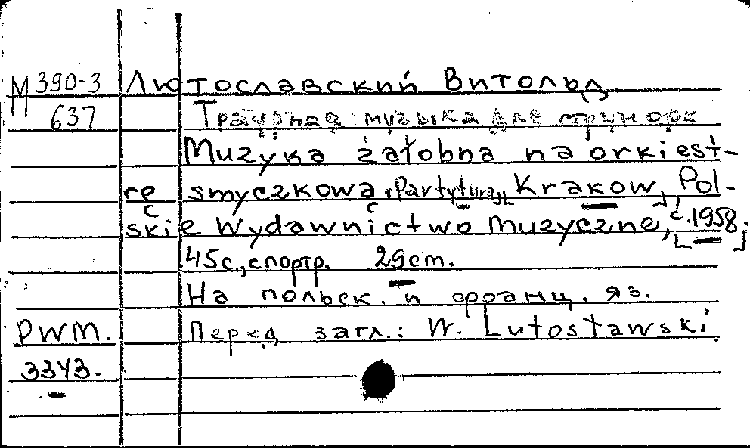 М 390-3 Лютославский Витольд
637 Траурная музыка для струн орк
Muzyka żałobna na orkiest-
rę smyczkową. Partytura. Kraków, Pol-
skie Wydawnictwo Muzyczne, [c.1958.]
45с., спортр. 29cm.
На польск. и франц. яз.
PWM. Перед загл.: W. Lutosławski.
3343.